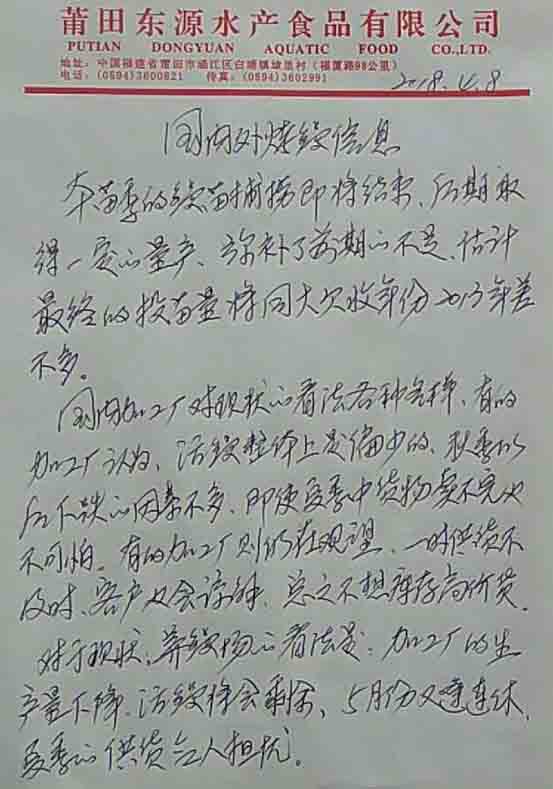 莆田东源水产食品有限公司
PUTIAN DONGYUAN AQUATIC FOOD CO.,LTD.
地址：中国福建省莆田市涵江区白塘镇埭里村（福厦路98公里）
电话：(0594)3600821 传真：(0594)3602991
2018.4.8
国内外烤鳗信息
本苗季的鳗苗捕捞即将结束、后期取
得一定的量产、弥补了前期的不足、估计
最终的投苗量将同大欠收年份2013年差
不多。
国内加工厂对现状的看法各种各样、有的
加工厂认为、活鳗整体上是偏少的、秋季以
后下跌的因素不多、即使夏季中货物卖不完也
不可怕。有的加工厂则仍在观望、一时供货不
及时、客户也会谅解、总之不想库存高价货。
对于现状、养鳗场的看法是、加工厂的生
产量下降、活鳗将会剩余、5月份又逢连休、
夏季的供货令人担忧。